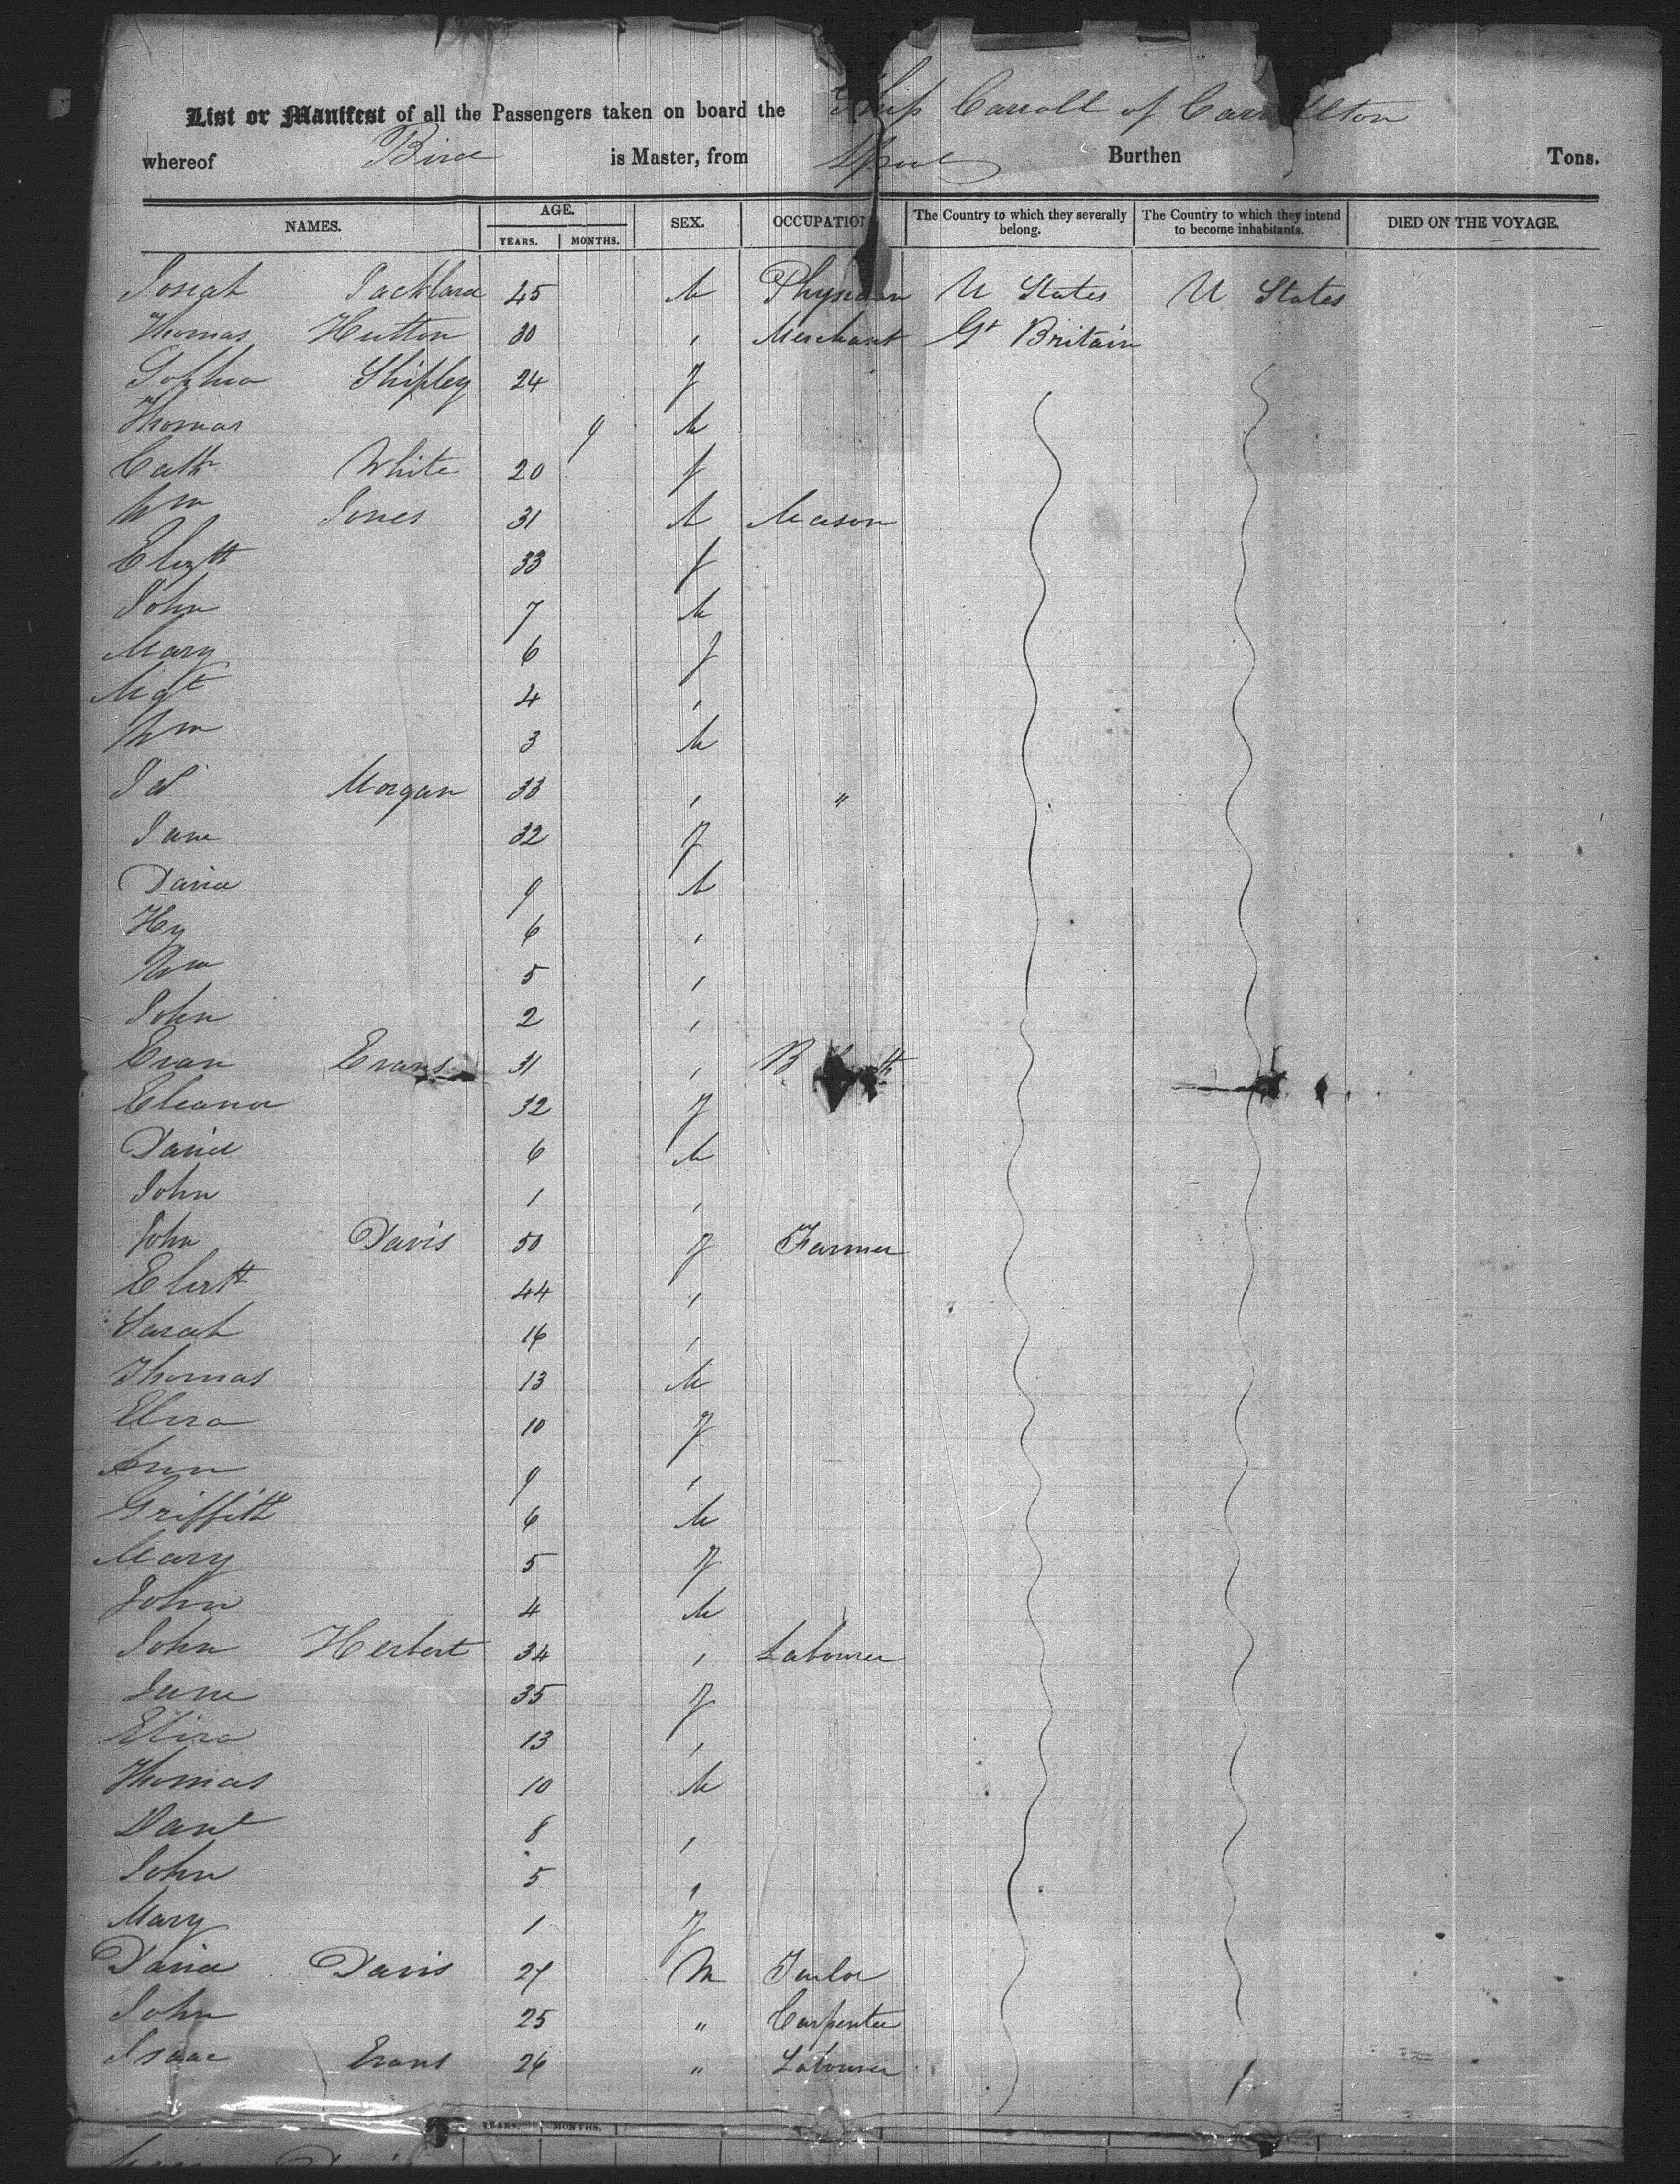 List or Manifest of all the Passengers taken on board the Ship Carroll of Carrollton
whereof Bird is Master, from Lpool Burthen Tons.
NAMES. AGE. YEARS. MONTHS. SEX. OCCUPATION The Country to which they severally belong. The Country to which they intend to become inhabitants. DIED ON THE VOYAGE.
Josiah Packard 45 M Physician U States U States
Thomas Hutton 30 , Merchant Gt Britain
Sophia Shipley 24 f
Thomas 9 M
Cath White 20 f
Wm Jones 31 M Mason
Elizth 33 f
John 7 M
Mary 6 f
Mgt 4 ,
Wm 3 M
Morgan 33 , "
Jane 32 f
David 9 M
Hy 6 ,
Wm 5 ,
John 2 ,
Evan Evans 31 , B th
Eleanor 32 f
David 6 M
John 1 ,
John Davis 50 f Farmer
Elizth 44 ,
Sarah 16 ,
Thomas 13 M
Eliza 10 f
Ann 9 ,
Griffith 6 M
Mary 5 f
John 4 M
John Herbert 34 , Labourer
Jane 35 f
Eliza 13 ,
Thomas 10 M
Danl 8 ,
John 5 ,
Mary 1 f
David Davis 27 M Tailor
John 25 " Carpenter
Isaac Evans 26 " Labourer
YEARS. MONTHS.